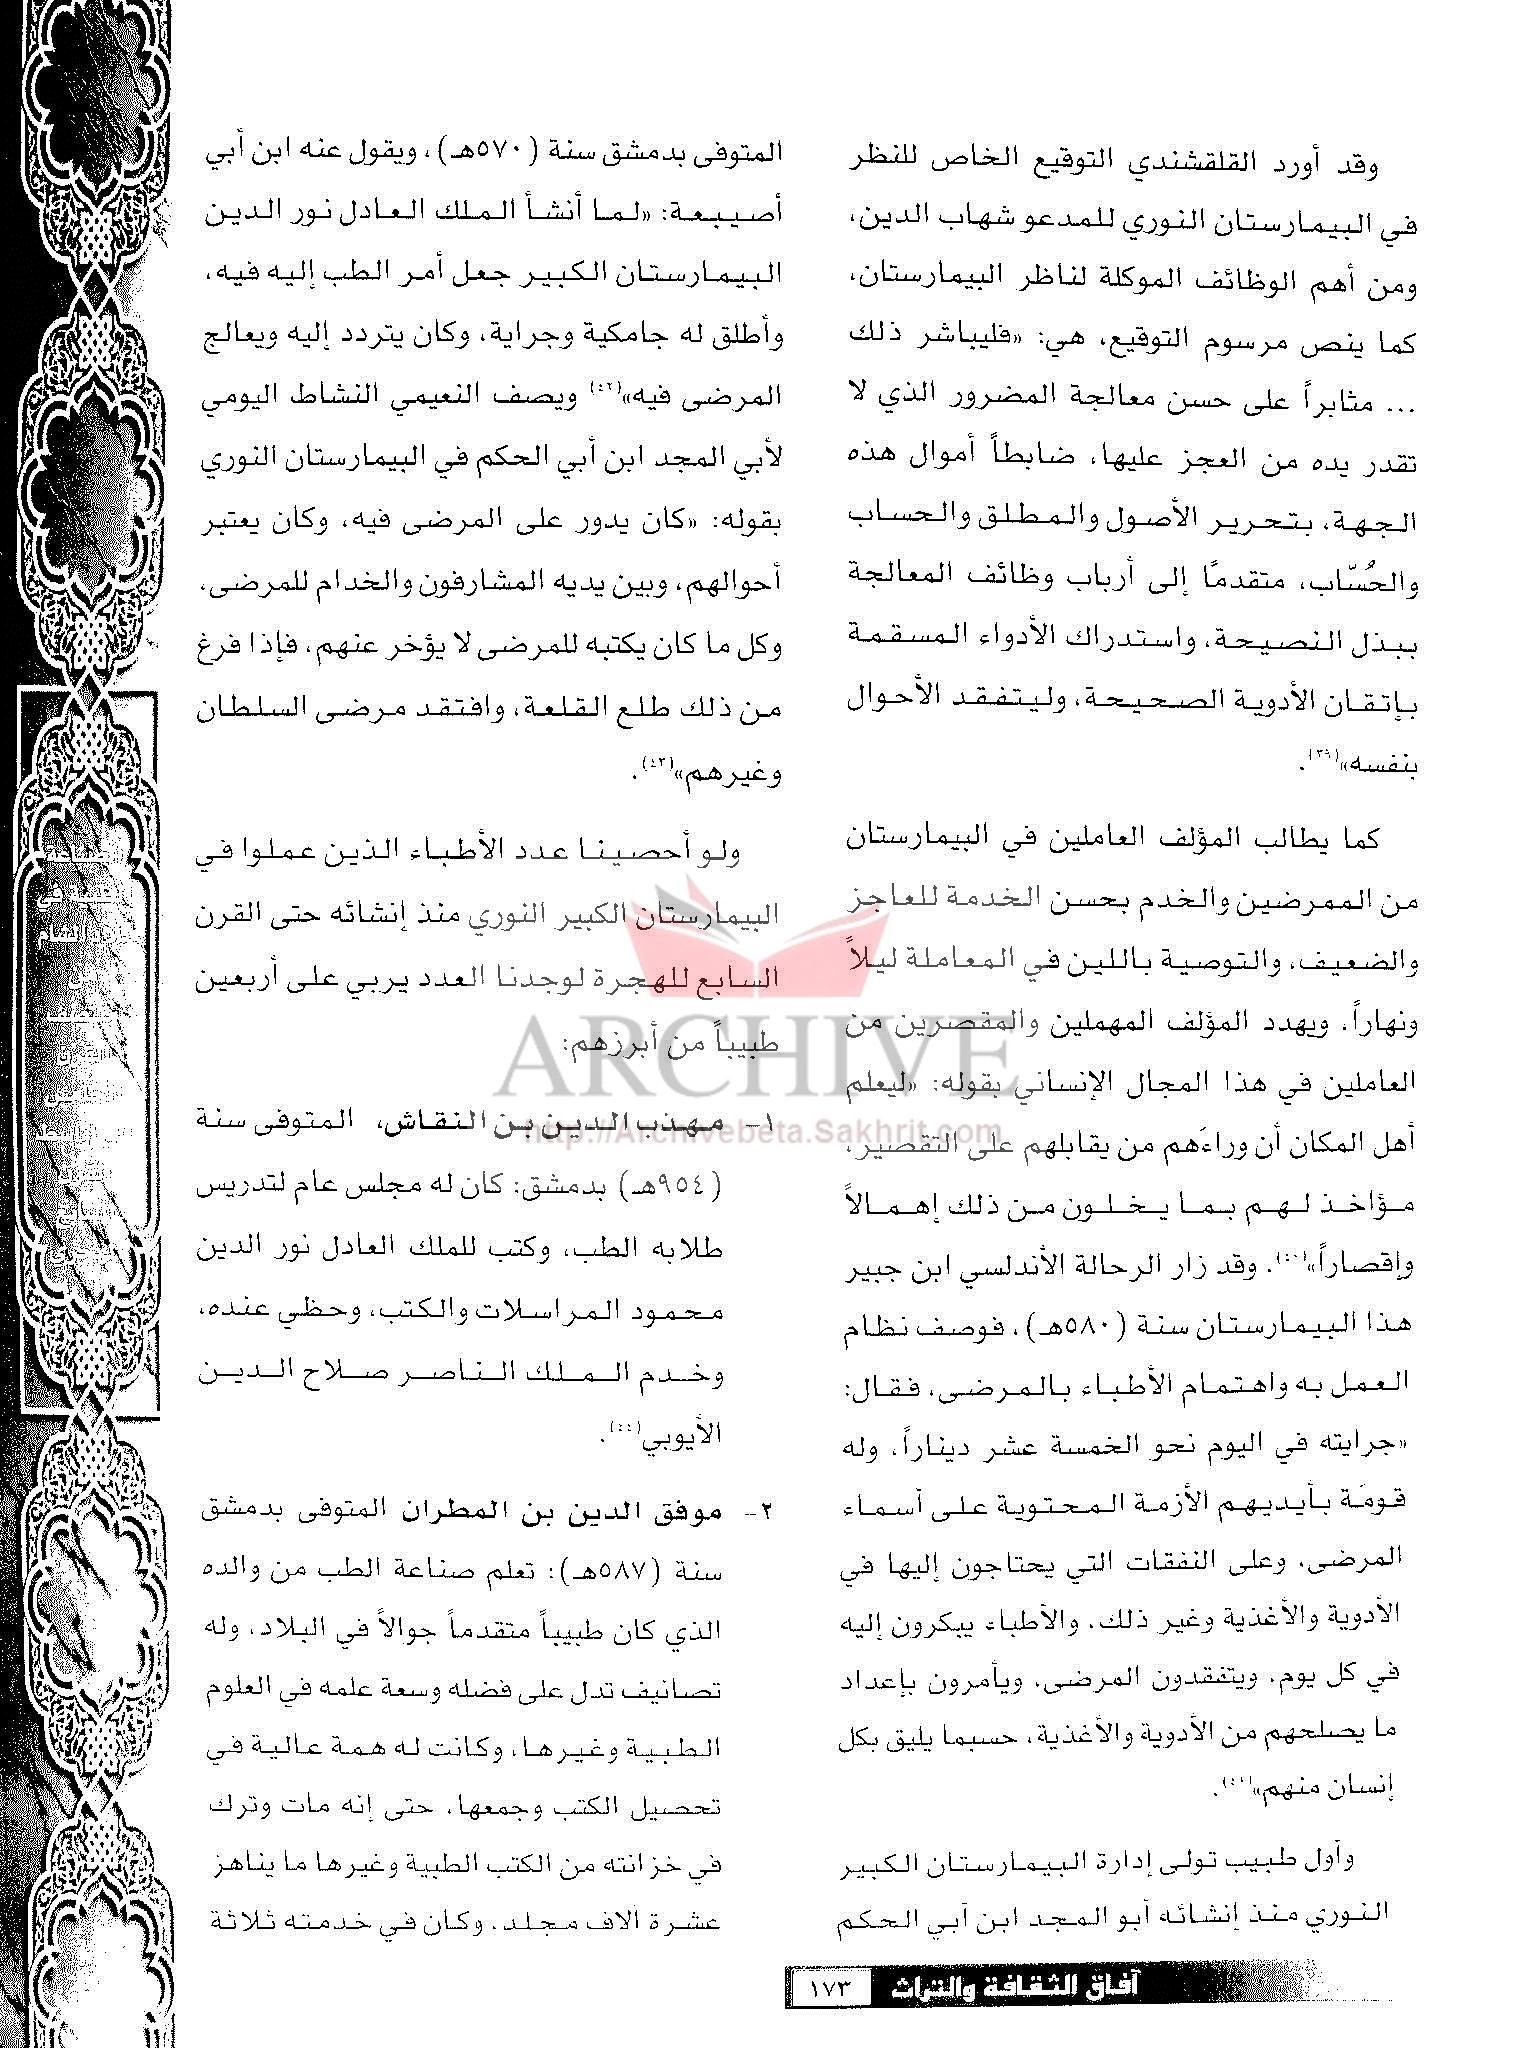 وقد أورد القلقشندي التوقيع الخاص للنظر
في البيمارستان النوري للمدعو شهاب الدين،
ومن أهم الوظائف الموكلة لناظر البيمارستان،
كما ينص مرسوم التوقيع، هي: «فليباشر ذلك
... مثابراً على حسن معالجة المضرور الذي لا
تقدر يده من العجز عليها، ضابطاً أموال هذه
الجهة، بتحرير الأصول والمطلق والحساب
والحُسّاب، متقدمًا إلى أرباب وظائف المعالجة
ببذل النصيحة، واستدراك الأدواء المسقمة
بإتقان الأدوية الصحيحة، وليتفقد الأحوال
بنفسه»(٣٩).
كما يطالب المؤلف العاملين في البيمارستان
من الممرضين والخدم بحسن الخدمة للعاجز
والضعيف، والتوصية باللين في المعاملة ليلاً
ونهاراً، ويهدد المؤلف المهملين والمقصرين من
العاملين في هذا المجال الإنساني بقوله: «ليعلم
أهل المكان أن وراءَهم من يقابلهم على التقصير،
مؤاخذ لهم بما يخلون من ذلك إهمالاً
وإقصاراً»(٤٠). وقد زار الرحالة الأندلسي ابن جبير
هذا البيمارستان سنة (٥٨٠هـ)، فوصف نظام
العمل به واهتمام الأطباء بالمرضى، فقال:
«جرايته في اليوم نحو الخمسة عشر ديناراً، وله
قومَة بأيديهم الأزمة المحتوية على أسماء
المرضى، وعلى النفقات التي يحتاجون إليها في
الأدوية والأغذية وغير ذلك، والأطباء يبكرون إليه
في كل يوم، ويتفقدون المرضى، ويأمرون بإعداد
ما يصلحهم من الأدوية والأغذية، حسبما يليق بكل
إنسان منهم»(٤١).
وأول طبيب تولى إدارة البيمارستان الكبير
النوري منذ إنشائه أبو المجد ابن أبي الحكم
المتوفى بدمشق سنة (٥٧٠هـ)، ويقول عنه ابن أبي
أصيبعة: «لما أنشأ الملك العادل نور الدين
البيمارستان الكبير جعل أمر الطب إليه فيه،
وأطلق له جامكية وجراية، وكان يتردد إليه ويعالج
المرضى فيه»(٤٢) ويصف النعيمي النشاط اليومي
لأبي المجد ابن أبي الحكم في البيمارستان النوري
بقوله: «كان يدور على المرضى فيه، وكان يعتبر
أحوالهم، وبين يديه المشارفون والخدام للمرضى،
وكل ما كان يكتبه للمرضى لا يؤخر عنهم، فإذا فرغ
من ذلك طلع القلعة، وافتقد مرضى السلطان
وغيرهم»(٤٣).
ولو أحصينا عدد الأطباء الذين عملوا في
البيمارستان الكبير النوري منذ إنشائه حتى القرن
السابع للهجرة لوجدنا العدد يربي على أربعين
طبيباً من أبرزهم:
١- مهذب الدين بن النقاش، المتوفى سنة
(٩٥٤هـ) بدمشق: كان له مجلس عام لتدريس
طلابه الطب، وكتب للملك العادل نور الدين
محمود المراسلات والكتب، وحظي عنده،
وخدم الملك الناصر صلاح الدين
الأيوبي(٤٤).
٢- موفق الدين بن المطران المتوفى بدمشق
سنة (٥٨٧هـ): تعلم صناعة الطب من والده
الذي كان طبيباً متقدماً جوالاً في البلاد، وله
تصانيف تدل على فضله وسعة علمه في العلوم
الطبية وغيرها، وكانت له همة عالية في
تحصيل الكتب وجمعها، حتى إنه مات وترك
في خزانته من الكتب الطبية وغيرها ما يناهز
عشرة آلاف مجلد، وكان في خدمته ثلاثة
ARCHIVE
http://Archivebeta.Sakhrit.com
آفاق الثقافة والتراث ١٧٣